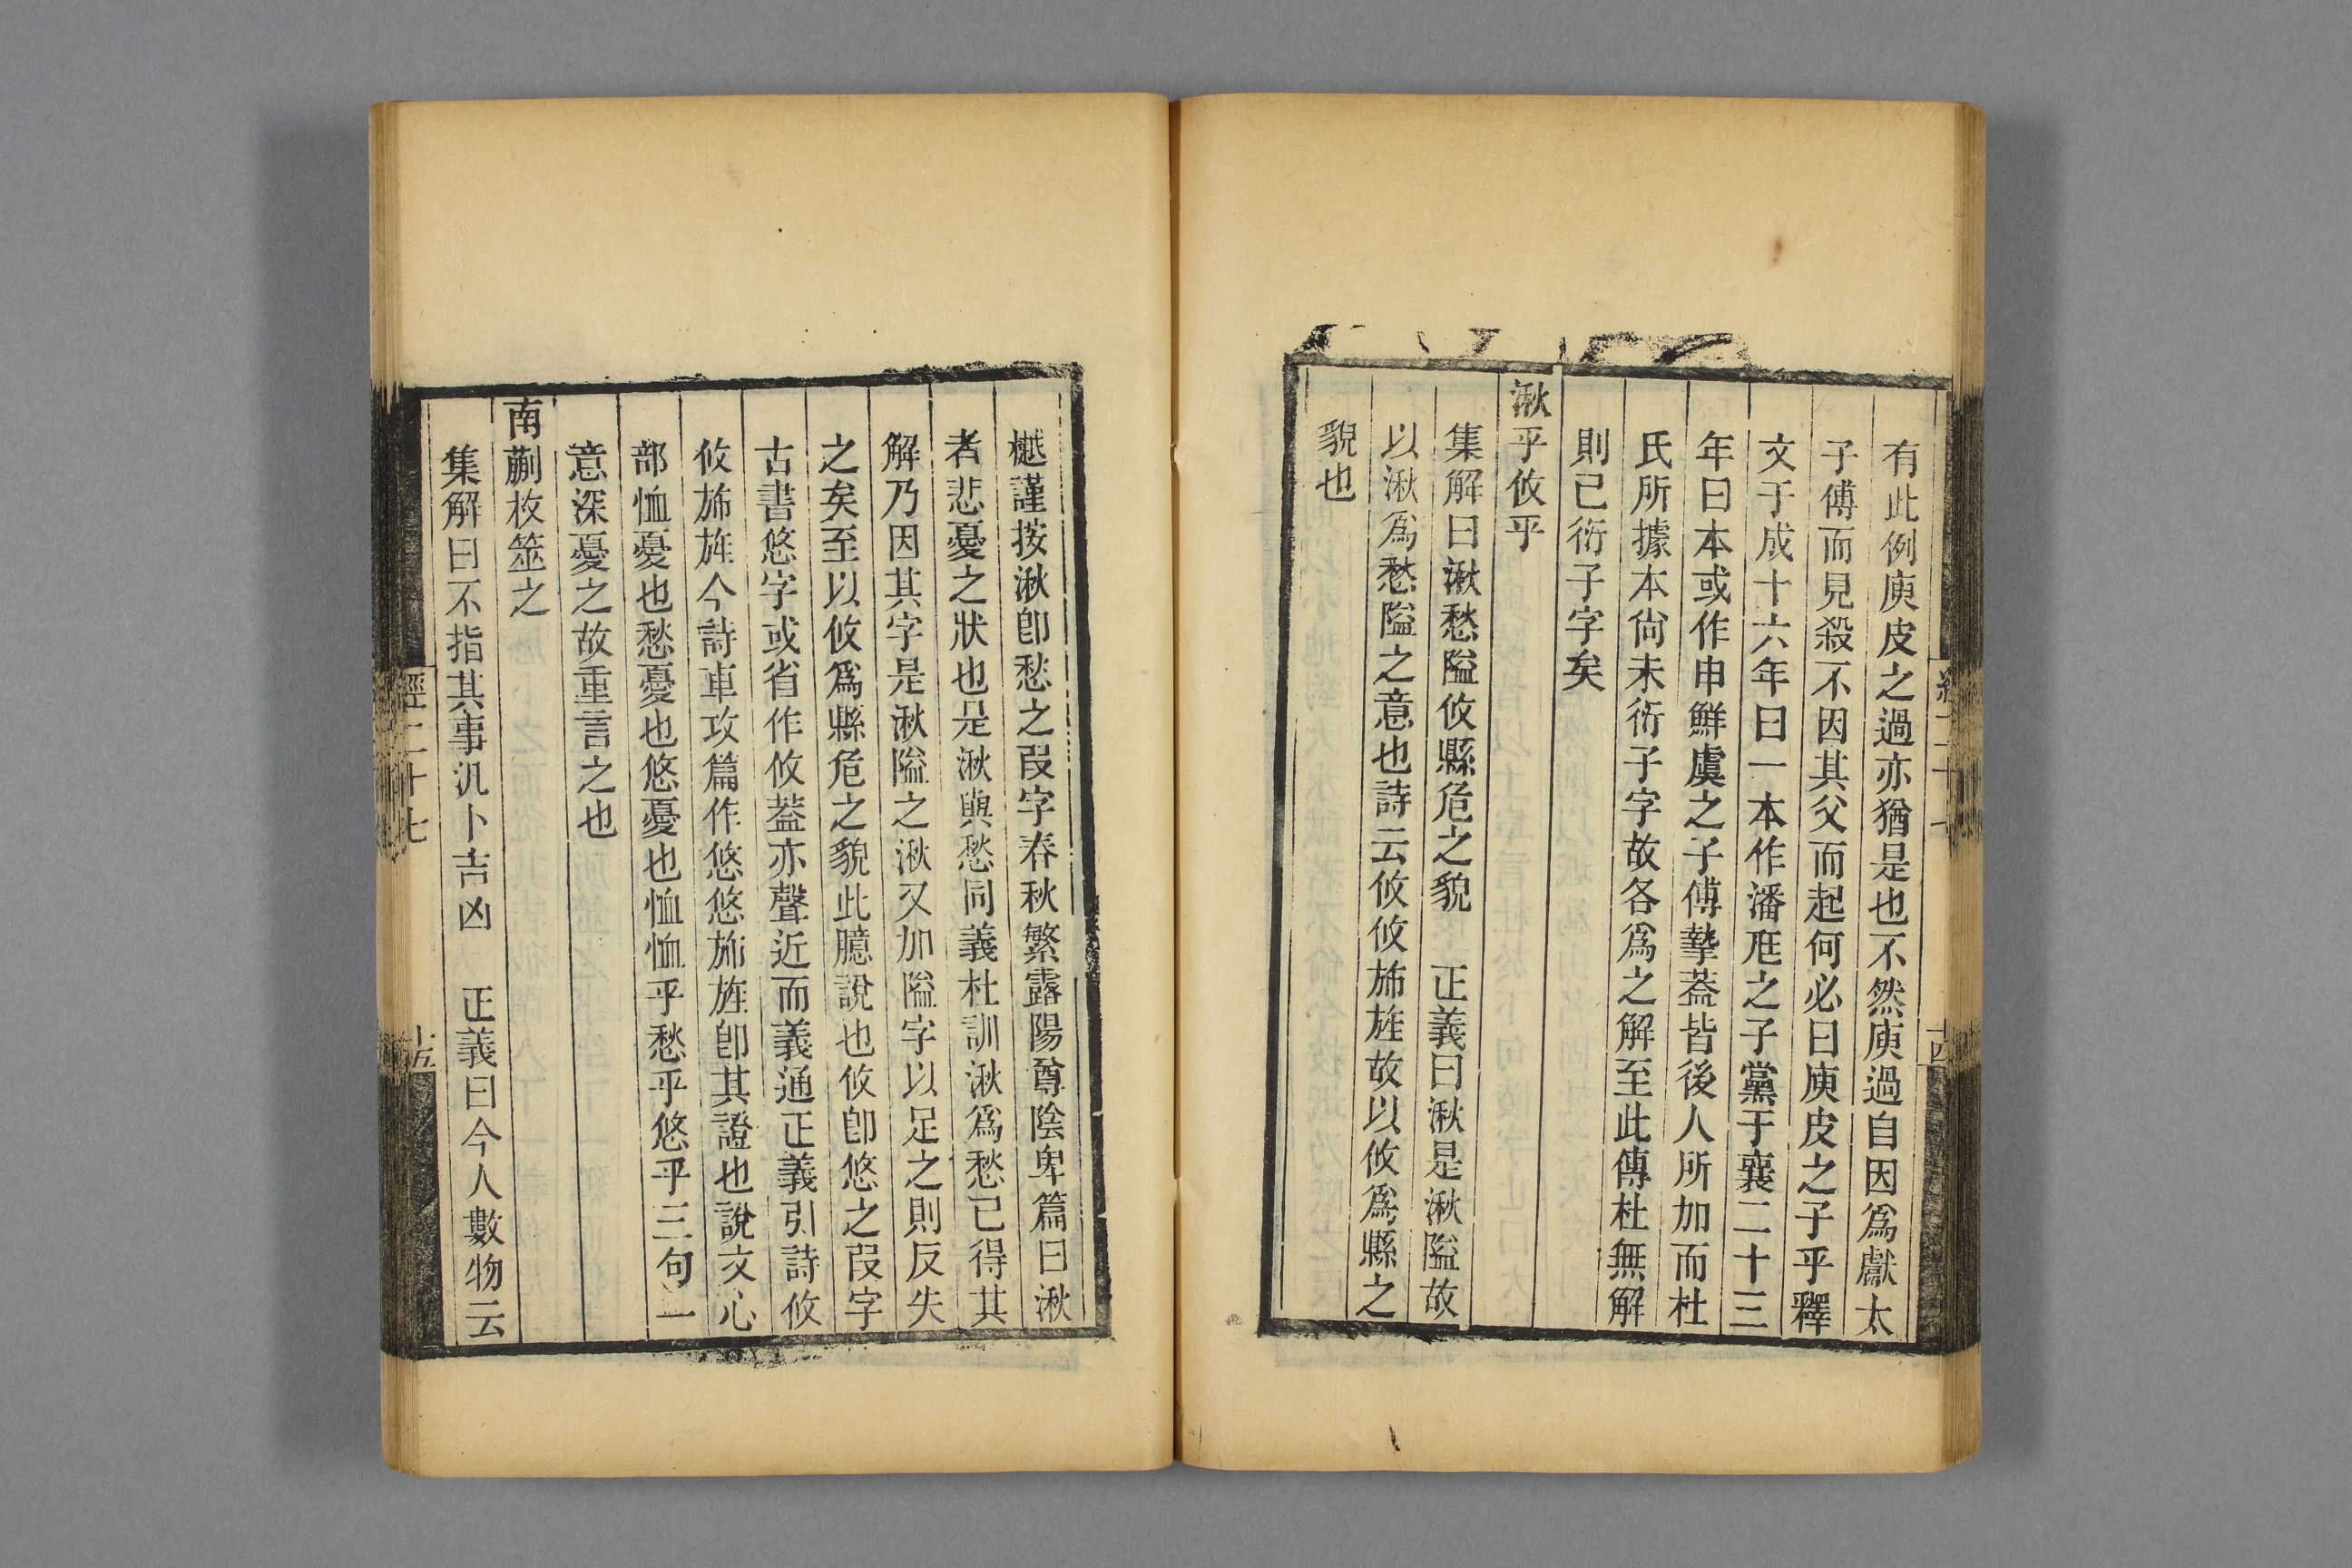 有此例庾皮之過亦猶是也不然庾過自因爲獻太
子傅而見殺不因其父而起何必曰庾皮之子乎釋
文于成十六年曰一本作潘尫之子黨于襄二十三
年曰本或作申鮮虞之子傅摯葢皆後人所加而杜
氏所據本尙未衍子字故各爲之解至此傳杜無解
則已衍子字矣
湫乎攸乎
集解曰湫愁隘攸縣危之貌　正義曰湫是湫隘故
以湫爲愁隘之意也詩云攸攸斾旌故以攸爲縣之
貌也
樾謹按湫卽愁之叚字春秋繁露陽尊陰卑篇曰湫
者悲憂之狀也是湫與愁同義杜訓湫爲愁已得其
解乃因其字是湫隘之湫又加隘字以足之則反失
之矣至以攸爲縣危之貌此臆說也攸卽悠之叚字
古書悠字或省作攸葢亦聲近而義通正義引詩攸
攸斾旌今詩車攻篇作悠悠斾旌卽其證也說文心
部恤憂也愁憂也悠憂也恤恤乎愁乎悠乎三句一
意深憂之故重言之也
南蒯枚筮之
集解曰不指其事汎卜吉凶　正義曰今人數物云
經二十七
十五
十四